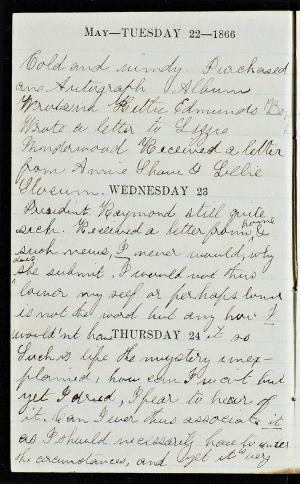 May—TUESDAY 22—1866
Cold and windy. Purchased
an Autograph Album
Wrote in Hettie Edmunds
Wrote a letter to Lizzie
Received a letter
from Annie Shaw & Lillie
WEDNESDAY 23
President Raymond still quite
sick. Received a letter from home &
such news, I never would, why
does she submit. I would not thus
lower my self or perhaps lower
is not the word but any how I
would'nt have it so
THURSDAY 24
Such is life the mystery unex-
plained, how can I wait but
yet I dread, I fear to hear of
it. Can I ever thus associate it
as I should necessarily have to under
the circumstances, and yet it very